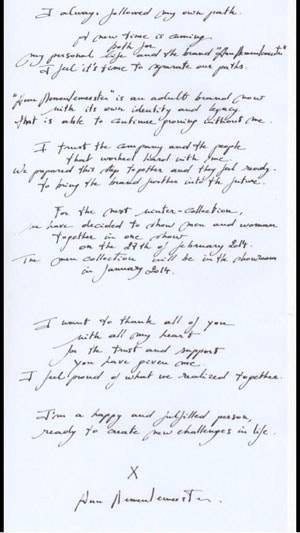 I always followed my own path.
A new time is coming
both for
my personal life and the brand "Ann Demeulemeester"
I feel it's time to separate our paths.
"Ann Demeulemeester" is an adult brand now
with its own identity and legacy
that is able to continue growing without me.
I trust the company and the people
that worked hard with me.
We prepared this step together and they feel ready.
to bring the brand further into the future.
For the next winter-collection,
we have decided to show men and women
together in one show
on the 27th of february 2014.
The men collection will be in the showroom
in january 2014.
I want to thank all of you
with all my heart
for the trust and support
you have given me
I feel proud of what we realized together.
I'm a happy and fulfilled person,
ready to create new challenges in life.
X
Ann Demeulemeester.